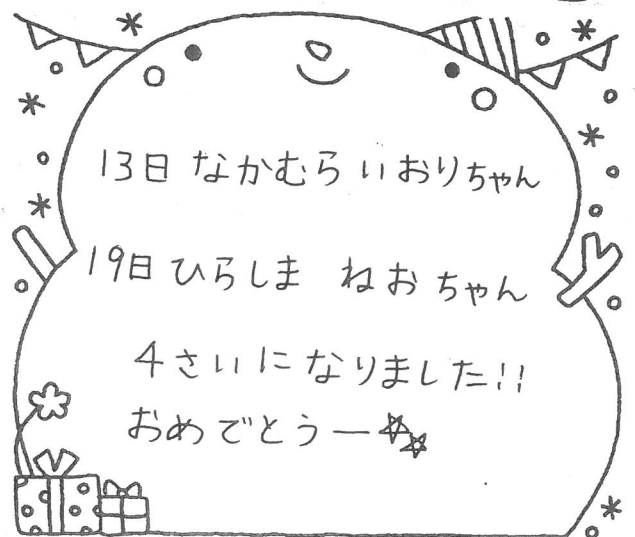 13日 なかむら いおりちゃん
19日 ひらしま ねおちゃん
4さいになりました!!
おめでとうー☆☆